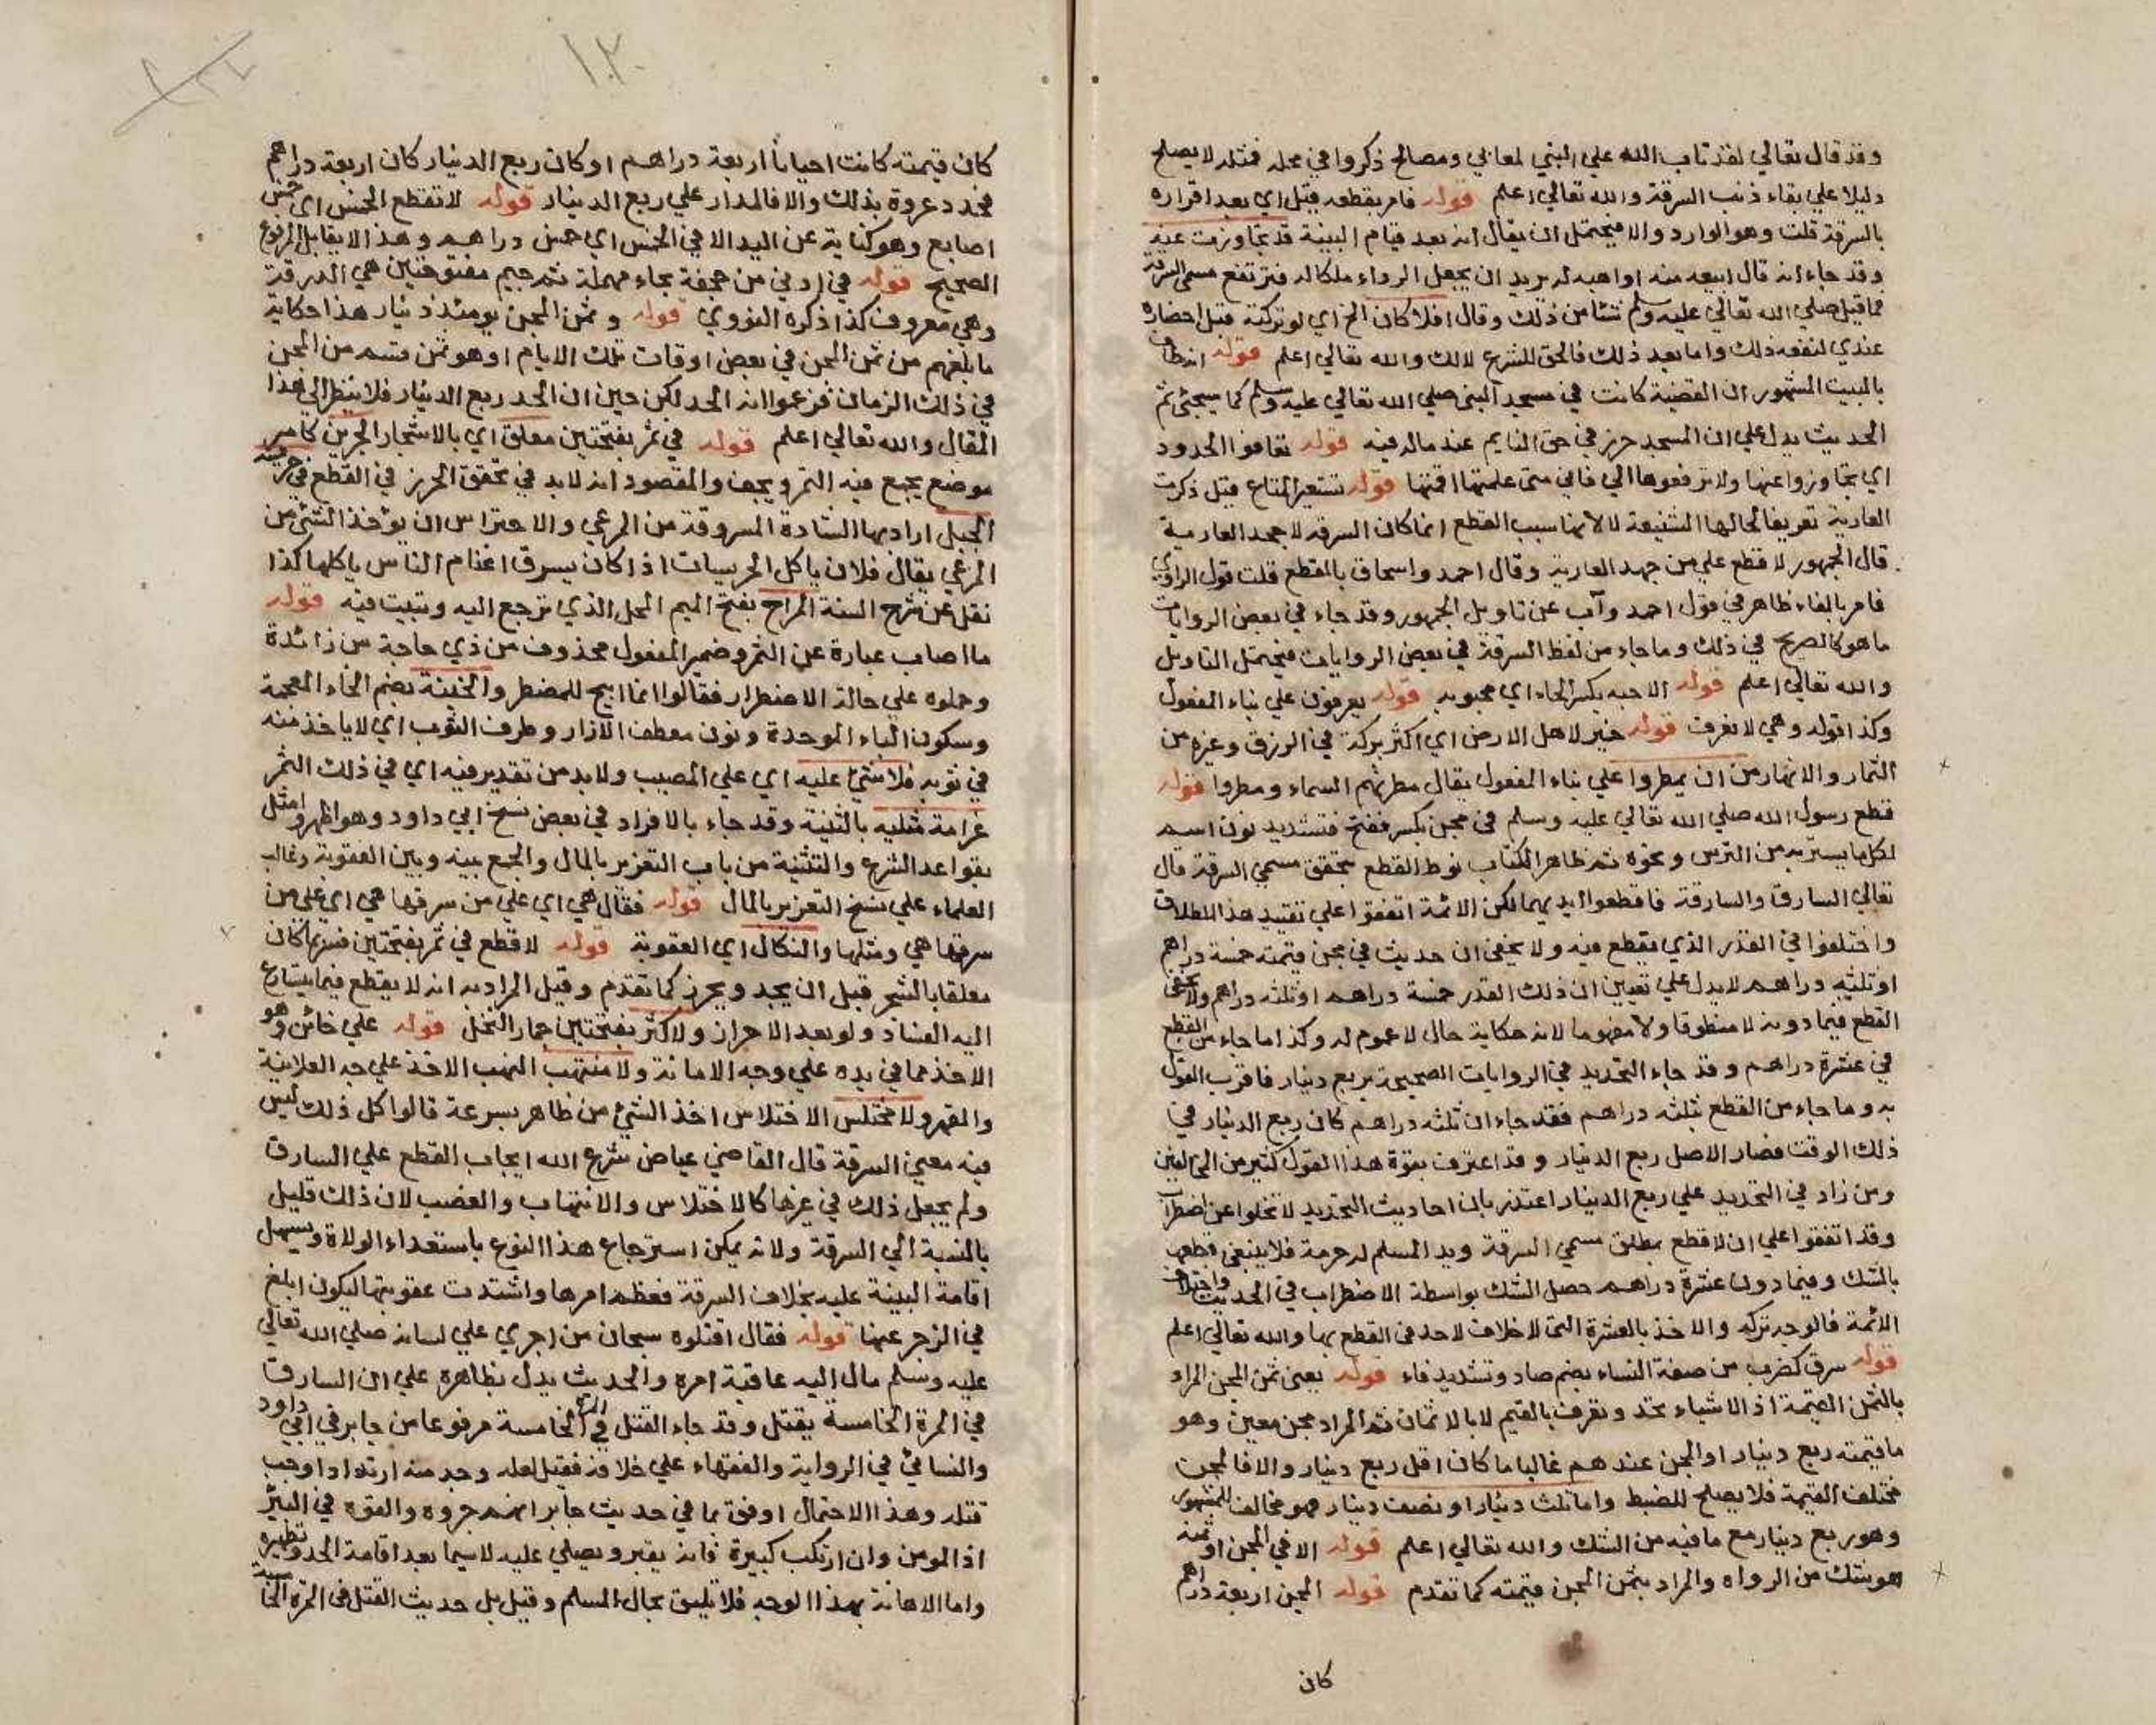 وقد قال تعالي لقد تاب الله علي النبي لمعاني ومصالح ذكروا في محله فمثله لا يصلح
دليلا علي بقاء ذنب السرقة والله تعالي اعلم قوله فامر بقطعه قيل اي بعد اقراره
بالسرقة قلت وهو الوارد والا فيحتمل ان يقال انه بعد قيام البينة قد تجاوزت عنه
وقد جاء انه قال ابيعه منه او اهبه له يريد ان يجعل الرداء ملكا له فترتفع مسمي السرقة
فما قبل صلي الله تعالي عليه وسلم شئا من ذلك وقال افلا كان الخ اي لو تركته قبل احضاره
عندي لنفعه ذلك واما بعد ذلك فالحق للشرع لا لك والله تعالي اعلم قوله
بالبيت المشهور ان القضية كانت في مسجد النبي صلي الله تعالي عليه وسلم كما سيجئ ثم
الحديث يدل علي ان المسجد حرز في حق النايم عند ماله فيه قوله تعافوا الحدود
اي تجاوزوا عنها ولا ترفعوها الي فاني متي علمتها اقمتها قوله تستعير المتاع قيل ذكرت
العارية تعريفا لحالها الشنيعة لا لانها سبب القطع انما كان السرقة لا جحد العارية
قال الجمهور لا قطع علي من جحد العارية وقال احمد واسحاق بالقطع قلت قول الراوي
فامر بالفاء ظاهر في قول احمد وآب عن تاويل الجمهور وقد جاء في بعض الروايات
ما هو كالصريح في ذلك وما جاء من لفظ السرقة في بعض الروايات فيحتمل التاويل
والله تعالي اعلم قوله الا حبه بكسر الحاء اي محبوبه قوله يعرفون علي بناء المفعول
وكذا قوله وهي لا تعرف قوله خير لاهل الارض اي اكثر بركة في الرزق وغيره من
الثمار والانهار من ان يمطروا علي بناء المفعول يقال مطرتهم السماء ومطروا قوله
قطع رسول الله صلي الله تعالي عليه وسلم في مجن بكسر ففتح فتشديد نون اسم
لكل ما يستتر به من الترس ونحوه ثم ظاهر الكتاب نوط القطع بتحقق مسمي السرقة قال
تعالي السارق والسارقة فاقطعوا ايديهما لكن الائمة اتفقوا علي تقييد هذا الاطلاق
واختلفوا في القدر الذي يقطع فيه ولا يخفي ان حديث في مجن قيمته خمسة دراهم
او ثلثه دراهم لا يدل علي تعيين ان ذلك القدر خمسة دراهم او ثلثه دراهم ولا
القطع فيما دونه لا منطوقا ولا مفهوما لانه حكاية حال لا عموم له وكذا ما جاء من القطع
في عشرة دراهم وقد جاء التحديد في الروايات الصحيحة بربع دينار فاقرب القول
به وما جاء من القطع بثلثه دراهم فقد جاء ان ثلثه دراهم كان ربع الدينار في
ذلك الوقت فصار الاصل ربع الدينار وقد اعترف بقوة هذا القول كثير من المخالفين
ومن زاد في التحديد علي ربع الدينار اعتذر بان احاديث التحديد لا تخلوا عن اضطراب
وقد اتفقوا علي ان لا قطع بمطلق مسمي السرقة ويد المسلم له حرمة فلا ينبغي قطعها
بالشك وفيما دون عشرة دراهم حصل الشك بواسطة الاضطراب في الحديث واختلاف
الائمة فالوجه تركه والاخذ بالعشرة التي لا خلاف لاحد في القطع بها والله تعالي اعلم
قوله سرق كضرب من صفة النساء بضم صاد وتشديد فاء قوله يعني ثمن المجن المراد
بالثمن القيمة اذ الاشياء تحد وتعرف بالقيم لا بالاثمان ثم المراد مجن معين وهو
ما قيمته ربع دينار او المجن عندهم غالبا ما كان اقل ربع دينار والا فالمجن
مختلف القيمة فلا يصلح للضبط واما ثلث دينار او نصف دينار فهو مخالف للمشهور
وهو ربع دينار مع ما فيه من الشك والله تعالي اعلم قوله الا في المجن او ثمنه
هو شك من الرواه والمراد بثمن المجن قيمته كما تقدم قوله المجن اربعة دراهم
كان
١٠٢
كان قيمته كانت احيانا اربعة دراهم او كان ربع الدينار كان اربعة دراهم
فحدد عروة بذلك والا فالمدار علي ربع الدينار قوله لا تقطع الخمس اي خمس
اصابع وهو كناية عن اليد الا في الخمس اي خمس دراهم وهذا لا يقابل المرفوع
الصحيح قوله في ادني من حجفة بحاء مهملة ثم جيم مفتوحتين هي الدرقة
وهي معروف كذا ذكره النووي قوله وثمن المجن يومئذ دينار هذا حكاية
ما بلغهم من ثمن المجن في بعض اوقات تلك الايام او هو ثمن قسم من المجن
في ذلك الزمان فزعموا انه الحد لكن حين ان الحد ربع الدينار فلا ينظر الي هذا
المقال والله تعالي اعلم قوله في ثمر بفتحتين معلق اي بالاشجار الجرين كامير
موضع يجمع فيه التمر ويجفف والمقصود انه لابد في تحقق الحرز في القطع في حريسة
الجبل اراد بها الشاة المسروقة من المرعي والاحتراس ان يؤخذ الشئ من
المرعي يقال فلان ياكل الحريسات اذا كان يسرق اغنام الناس ياكلها كذا
نقل عن شرح السنة المراح بفتح الميم المحل الذي ترجع اليه وتبيت فيه قوله
ما اصاب عبارة عن الثمر وضمير المفعول محذوف من ذي حاجة من زائدة
وحملوه علي حالة الاضطرار فقالوا انما ابيح للمضطر والخبنة بضم الخاء المعجمة
وسكون الباء الموحدة ونون معطف الازار وطرف الثوب اي لا ياخذ منه
في ثوبه فلا شئ عليه اي علي المصيب ولابد من تقدير فيه اي في ذلك الثمر
غرامة مثليه بالتثنية وقد جاء بالافراد في بعض نسخ ابي داود وهو اظهر وامثل
بقواعد الشرع والتثنية من باب التعزير بالمال والجمع بينه وبين العقوبة وغالب
العلماء علي نسخ التعزير بالمال قوله فقال هي اي علي من سرقها هي اي علي من
سرقها هي ومثلها والنكال اي العقوبة قوله لا قطع في ثمر بفتحتين فسر بما كان
معلقا بالشجر قبل ان يجد ويحرز كما تقدم وقيل المراد به انه لا يقطع فيما يتسارع
اليه الفساد ولو بعد الاحراز ولا كثر بفتحتين جمار النخل قوله علي خائن وهو
الاخذ مما في يده علي وجه الامانة ولا منتهب النهب الاخذ علي وجه العلانية
والقهر ولا مختلس الاختلاس اخذ الشئ من ظاهر بسرعة قالوا كل ذلك ليس
فيه معني السرقة قال القاضي عياض شرع الله ايجاب القطع علي السارق
ولم يجعل ذلك في غيرها كالاختلاس والانتهاب والغصب لان ذلك قليل
بالنسبة الي السرقة ولانه يمكن استرجاع هذا النوع باستعداء الولاة ويسهل
اقامة البينة عليه بخلاف السرقة فعظم امرها واشتدت عقوبتها ليكون ابلغ
في الزجر عنها قوله فقال اقتلوه سبحان من اجري علي لسانه صلي الله تعالي
عليه وسلم مال اليه عاقبة امره والحديث يدل بظاهره علي ان السارق
في المرة الخامسة يقتل وقد جاء القتل في المرة الخامسة مرفوعا من جابر في ابي داود
والنسائي في الرواية والفقهاء علي خلافه فقيل لعله وجد منه ارتداد اوجب
قتله وهذا الاحتمال اوفق بما في حديث جابر انهم جروه والقوه في البئر
اذ المومن وان ارتكب كبيرة فانه يقبر ويصلي عليه لا سيما بعد اقامة الحد وتطهيره
واما الاهانة بهذا الوجه فلا تليق بحال المسلم وقيل بل حديث القتل في المرة الخامسة